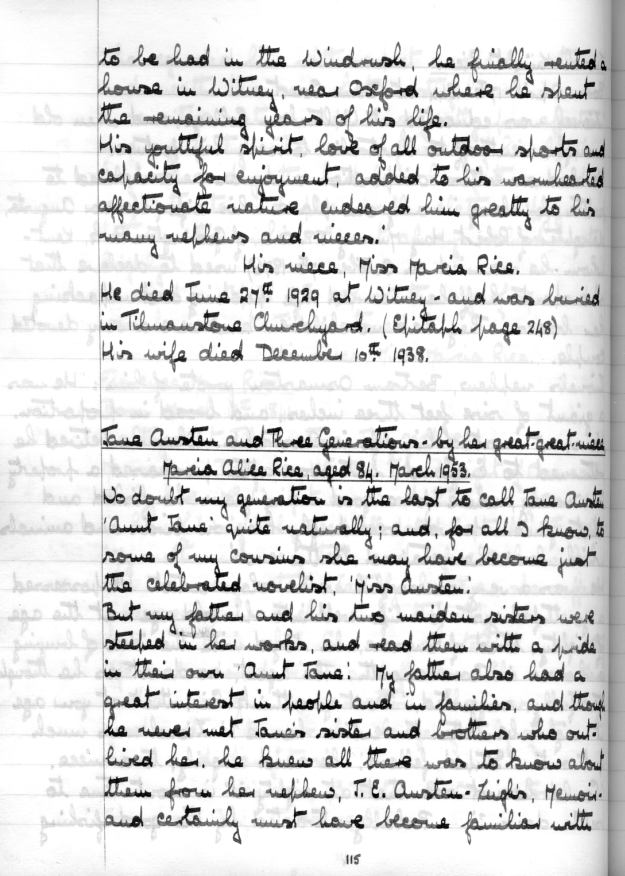 to be had in the Windrush, he finally rented a
house in Witney, near Oxford where he spent
the remaining years of his life.
His youthful spirit, love of all outdoor sports and
capacity for enjoyment, added to his warmhearted
affectionate nature endeared him greatly to his
many nephews and nieces.'
His niece, Miss Marcia Rice.
He died June 27th 1929 at Witney - and was buried
in Tilmanstone Churchyard. (Epitaph page 248)
His wife died December 10th 1938.
Jane Austen and Three Generations - by her great-great-niece
Marcia Alice Rice, aged 84. March 1953.
No doubt my generation is the last to call Jane Austen
'Aunt Jane' quite naturally; and, for all I know, to
some of my cousins she may have become just
the celebrated novelist, 'Miss Austen'.
But my father and his two maiden sisters were
steeped in her works, and read them with a pride
in their own 'Aunt Jane'. My father also had a
great interest in people and in families, and though
he never met Jane's sister and brothers who out-
lived her, he knew all there was to know about
them from her nephew, J. E. Austen-Leigh's, Memoir -
and certainly must have become familiar with
115